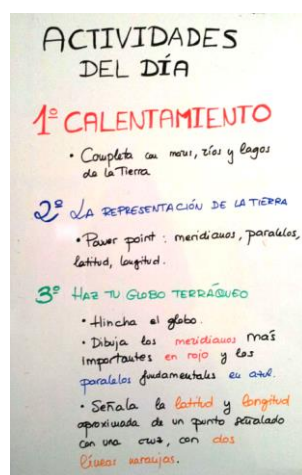 ACTIVIDADES
DEL DÍA
1º CALENTAMIENTO
• Completa con mares, ríos y lagos
de la Tierra
2º LA REPRESENTACIÓN DE LA TIERRA
• Power point: meridianos, paralelos,
latitud, longitud.
3º HAZ TU GLOBO TERRÁQUEO
• Hincha el globo.
• Dibuja los meridianos más
importantes en rojo y los
paralelos fundamentales en azul.
• Señala la latitud y longitud
aproximada de un punto señalado
con una cruz, con dos
líneas naranjas.